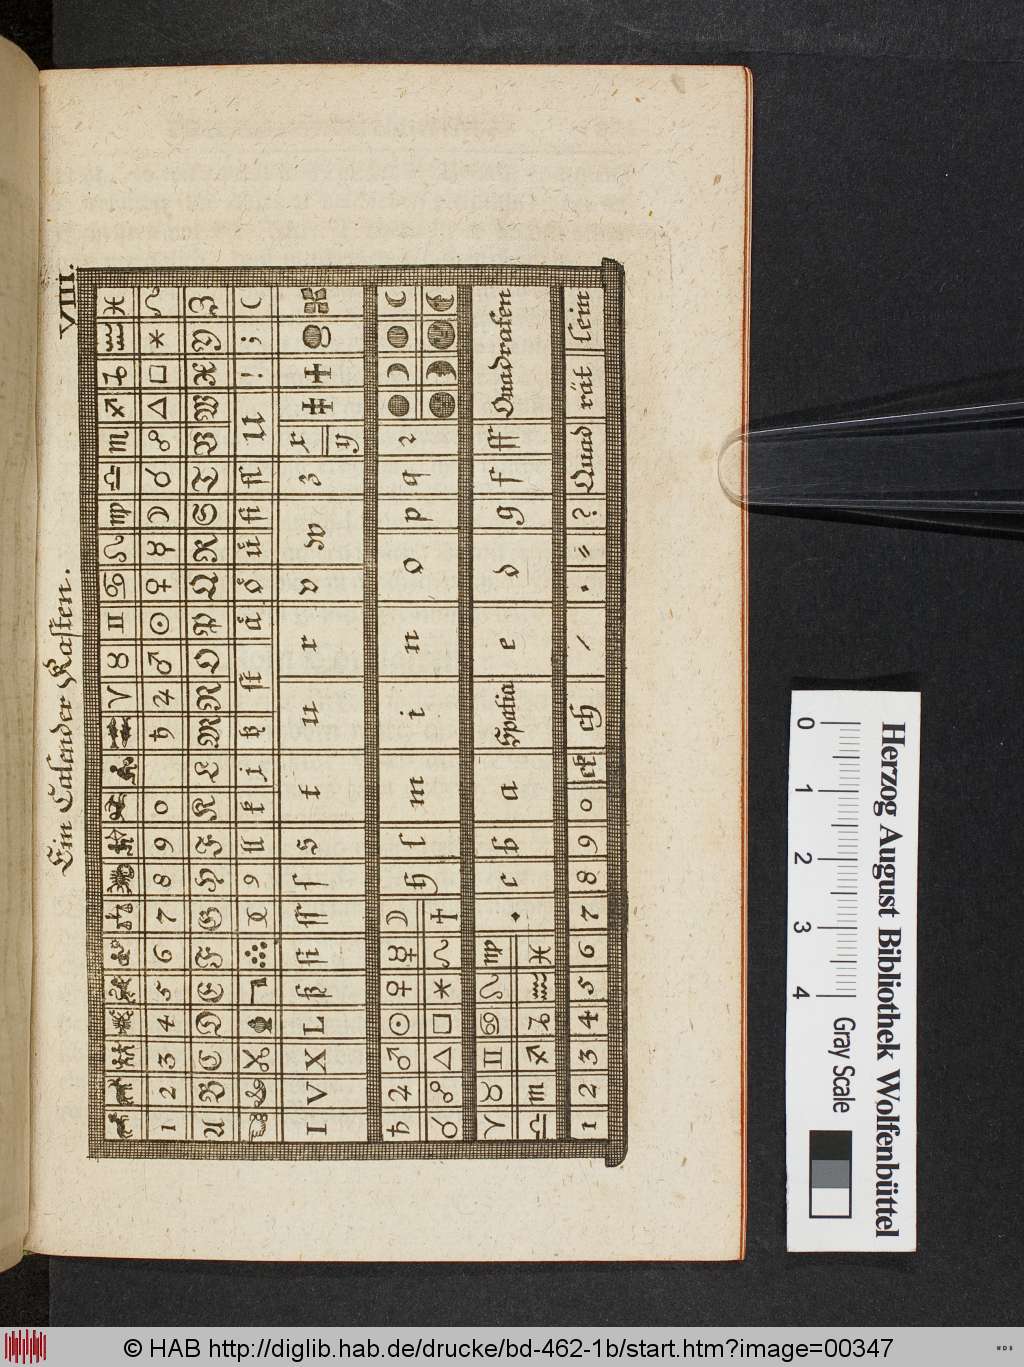 VIII.
Ein Calender Kasten.
♈ ♉ ♊ ♋ ♌ ♍ ♎ ♏ ♐ ♑ ♒ ♓
1 2 3 4 5 6 7 8 9 0 ♄ ♃ ♂ ☉ ♀ ☿ ☽ ☌ ☍ △ □ ✶ ☊
A B C D E F G H I K L M N O P Q R S T V W X Y Z
9 ll k j ß ſt aͤ oͤ uͤ ſi ſſ U ! ; (
I V X L ß ſi ſſ ſ s t u r v w z x y
♄ ♃ ♂ ☉ ♀ ☿ ☽ h l m i n o p q ꝛ
☌ ☍ △ □ ✶ ☊ †
♈ ♉ ♊ ♋ ♌ ♍ · c b a Spatia e d g f ff Quadraten
♎ ♏ ♐ ♑ ♒ ♓
1 2 3 4 5 6 7 8 9 0 ck ch / . = ? Quad rät lein
0 1 2 3 4
Gray Scale
Herzog August Bibliothek Wolfenbüttel
© HAB http://diglib.hab.de/drucke/bd-462-1b/start.htm?image=00347